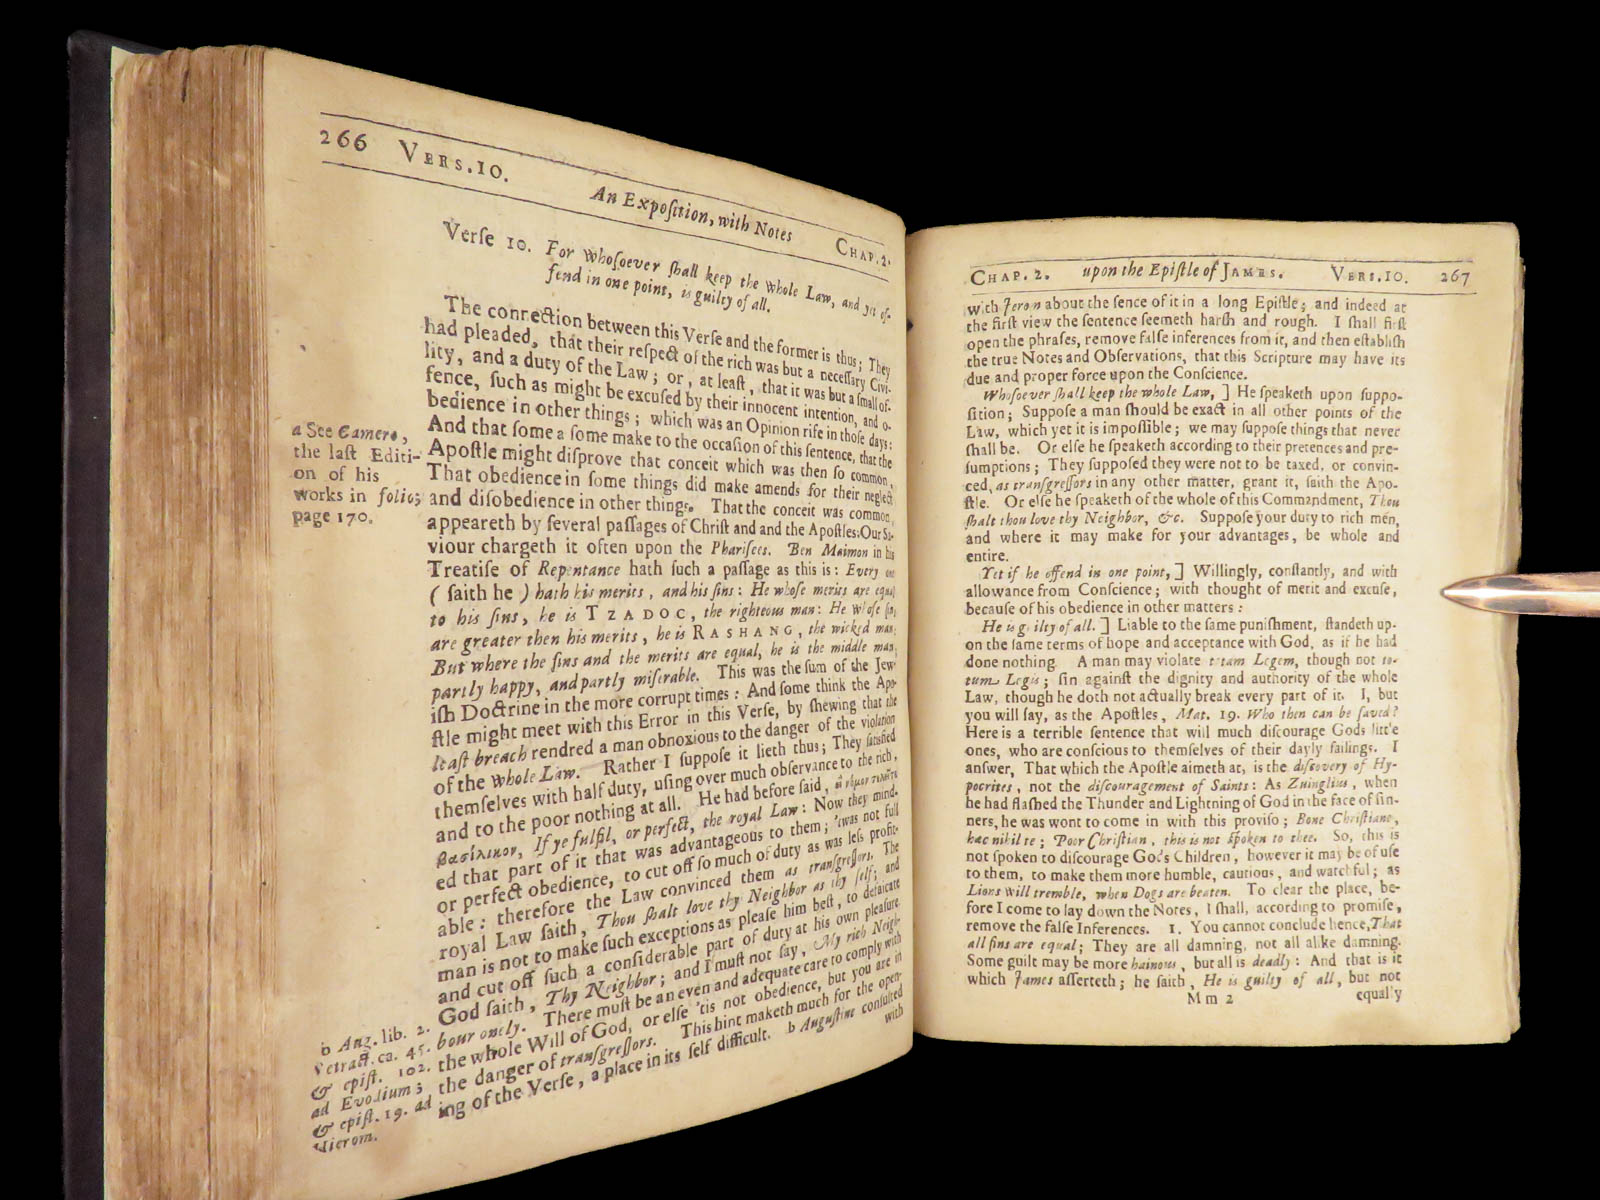 266 VERS.10. An Expoſition, with Notes CHAP.2.
Verſe 10. For Whoſoever ſhall keep the Whole Law, and yet of-
fend in one point, is guilty of all.
The connection between this Verſe and the former is thus; They
had pleaded, that their reſpect of the rich was but a neceſſary Civi-
lity, and a duty of the Law; or, at leaſt, that it was but a ſmall of-
fence, ſuch as might be excuſed by their innocent intention, and o-
bedience in other things; which was an Opinion rife in thoſe days:
And that ſome a ſome make to the occaſion of this ſentence, that the
Apoſtle might diſprove that conceit which was then ſo common,
That obedience in ſome things did make amends for their neglect
and diſobedience in other things. That the conceit was common,
appeareth by ſeveral paſſages of Chriſt and and the Apoſtles: Our Sa-
viour chargeth it often upon the Phariſees. Ben Maimon in his
Treatiſe of Repentance hath ſuch a paſſage as this is: Every one
( ſaith he ) hath his merits, and his ſins: He whoſe merits are equal
to his ſins, he is TZADOC, the righteous man: He whoſe ſins
are greater then his merits, he is RASHANG, the wicked man:
But where the ſins and the merits are equal, he is the middle man,
partly happy, and partly miſerable. This was the ſum of the Jew-
iſh Doctrine in the more corrupt times: And ſome think the Apo-
ſtle might meet with this Error in this Verſe, by ſhewing that the
leaſt breach rendred a man obnoxious to the danger of the violation
of the whole Law. Rather I ſuppoſe it lieth thus; They ſatisfied
themſelves with half duty, uſing over much obſervance to the rich,
and to the poor nothing at all. He had before ſaid,
βασίλικον, If ye fulfil, or perfect, the royal Law: Now they mind-
ed that part of it that was advantageous to them; 'twas not full
or perfect obedience, to cut off ſo much of duty as was leſs profit-
able: therefore the Law convinced them as tranſgreſſors. The
royal Law ſaith, Thou ſhalt love thy Neighbor as thy ſelf; and
man is not to make ſuch exceptions as pleaſe him beſt, to defalcate
and cut off ſuch a conſiderable part of duty at his own pleaſure.
God ſaith, Thy Neighbor; and I muſt not ſay, My rich Neigh-
bour onely. There muſt be an even and adequate care to comply with
the whole Will of God, or elſe 'tis not obedience, but you are in
the danger of tranſgreſſors. This hint maketh much for the open-
ing of the Verſe, a place in its ſelf difficult. b Auguſtine conſulted
with
a See Camero,
the laſt Editi-
on of his
works in folio;
page 170.
b Aug. lib. 2.
retract. ca. 45.
& epiſt. 102.
ad Evodium;
& epiſt. 19. ad
Hierom.
CHAP. 2. upon the Epiſtle of JAMES. VERS.10. 267
with Jerom about the ſence of it in a long Epiſtle; and indeed at
the firſt view the ſentence ſeemeth harſh and rough. I ſhall firſt
open the phraſes, remove falſe inferences from it, and then eſtabliſh
the true Notes and Obſervations, that this Scripture may have its
due and proper force upon the Conſcience.
Whoſoever ſhall keep the whole Law, ] He ſpeaketh upon ſuppo-
ſition; Suppoſe a man ſhould be exact in all other points of the
Law, which yet it is impoſſible; we may ſuppoſe things that never
ſhall be. Or elſe he ſpeaketh according to their pretences and pre-
ſumptions; They ſuppoſed they were not to be taxed, or convin-
ced, as tranſgreſſors in any other matter, grant it, ſaith the Apo-
ſtle. Or elſe he ſpeaketh of the whole of this Commandment, Thou
ſhalt thou love thy Neighbor, &c. Suppoſe your duty to rich men,
and where it may make for your advantages, be whole and
entire.
Yet if he offend in one point, ] Willingly, conſtantly, and with
allowance from Conſcience; with thought of merit and excuſe,
becauſe of his obedience in other matters:
He is guilty of all. ] Liable to the ſame puniſhment, ſtandeth up-
on the ſame terms of hope and acceptance with God, as if he had
done nothing. A man may violate totam Legem, though not to-
tum Legis; ſin againſt the dignity and authority of the whole
Law, though he doth not actually break every part of it. I, but
you will ſay, as the Apoſtles, Mat. 19. Who then can be ſaved?
Here is a terrible ſentence that will much diſcourage Gods little
ones, who are conſcious to themſelves of their dayly failings. I
anſwer, That which the Apoſtle aimeth at, is the diſcovery of Hy-
pocrites, not the diſcouragement of Saints: As Zuinglius, when
he had flaſhed the Thunder and Lightning of God in the face of ſin-
ners, he was wont to come in with this proviſo; Bone Chriſtiane,
hæc nihil te; Poor Chriſtian, this is not ſpoken to thee. So, this is
not ſpoken to diſcourage Gods Children, however it may be of uſe
to them, to make them more humble, cautious, and watchful; as
Lions will tremble, when Dogs are beaten. To clear the place, be-
fore I come to lay down the Notes, I ſhall, according to promiſe,
remove the falſe Inferences. 1. You cannot conclude hence, That
all ſins are equal; They are all damning, not all alike damning.
Some guilt may be more hainous, but all is deadly: And that is it
which James aſſerteth; he ſaith, He is guilty of all, but not
Mm 2 equally